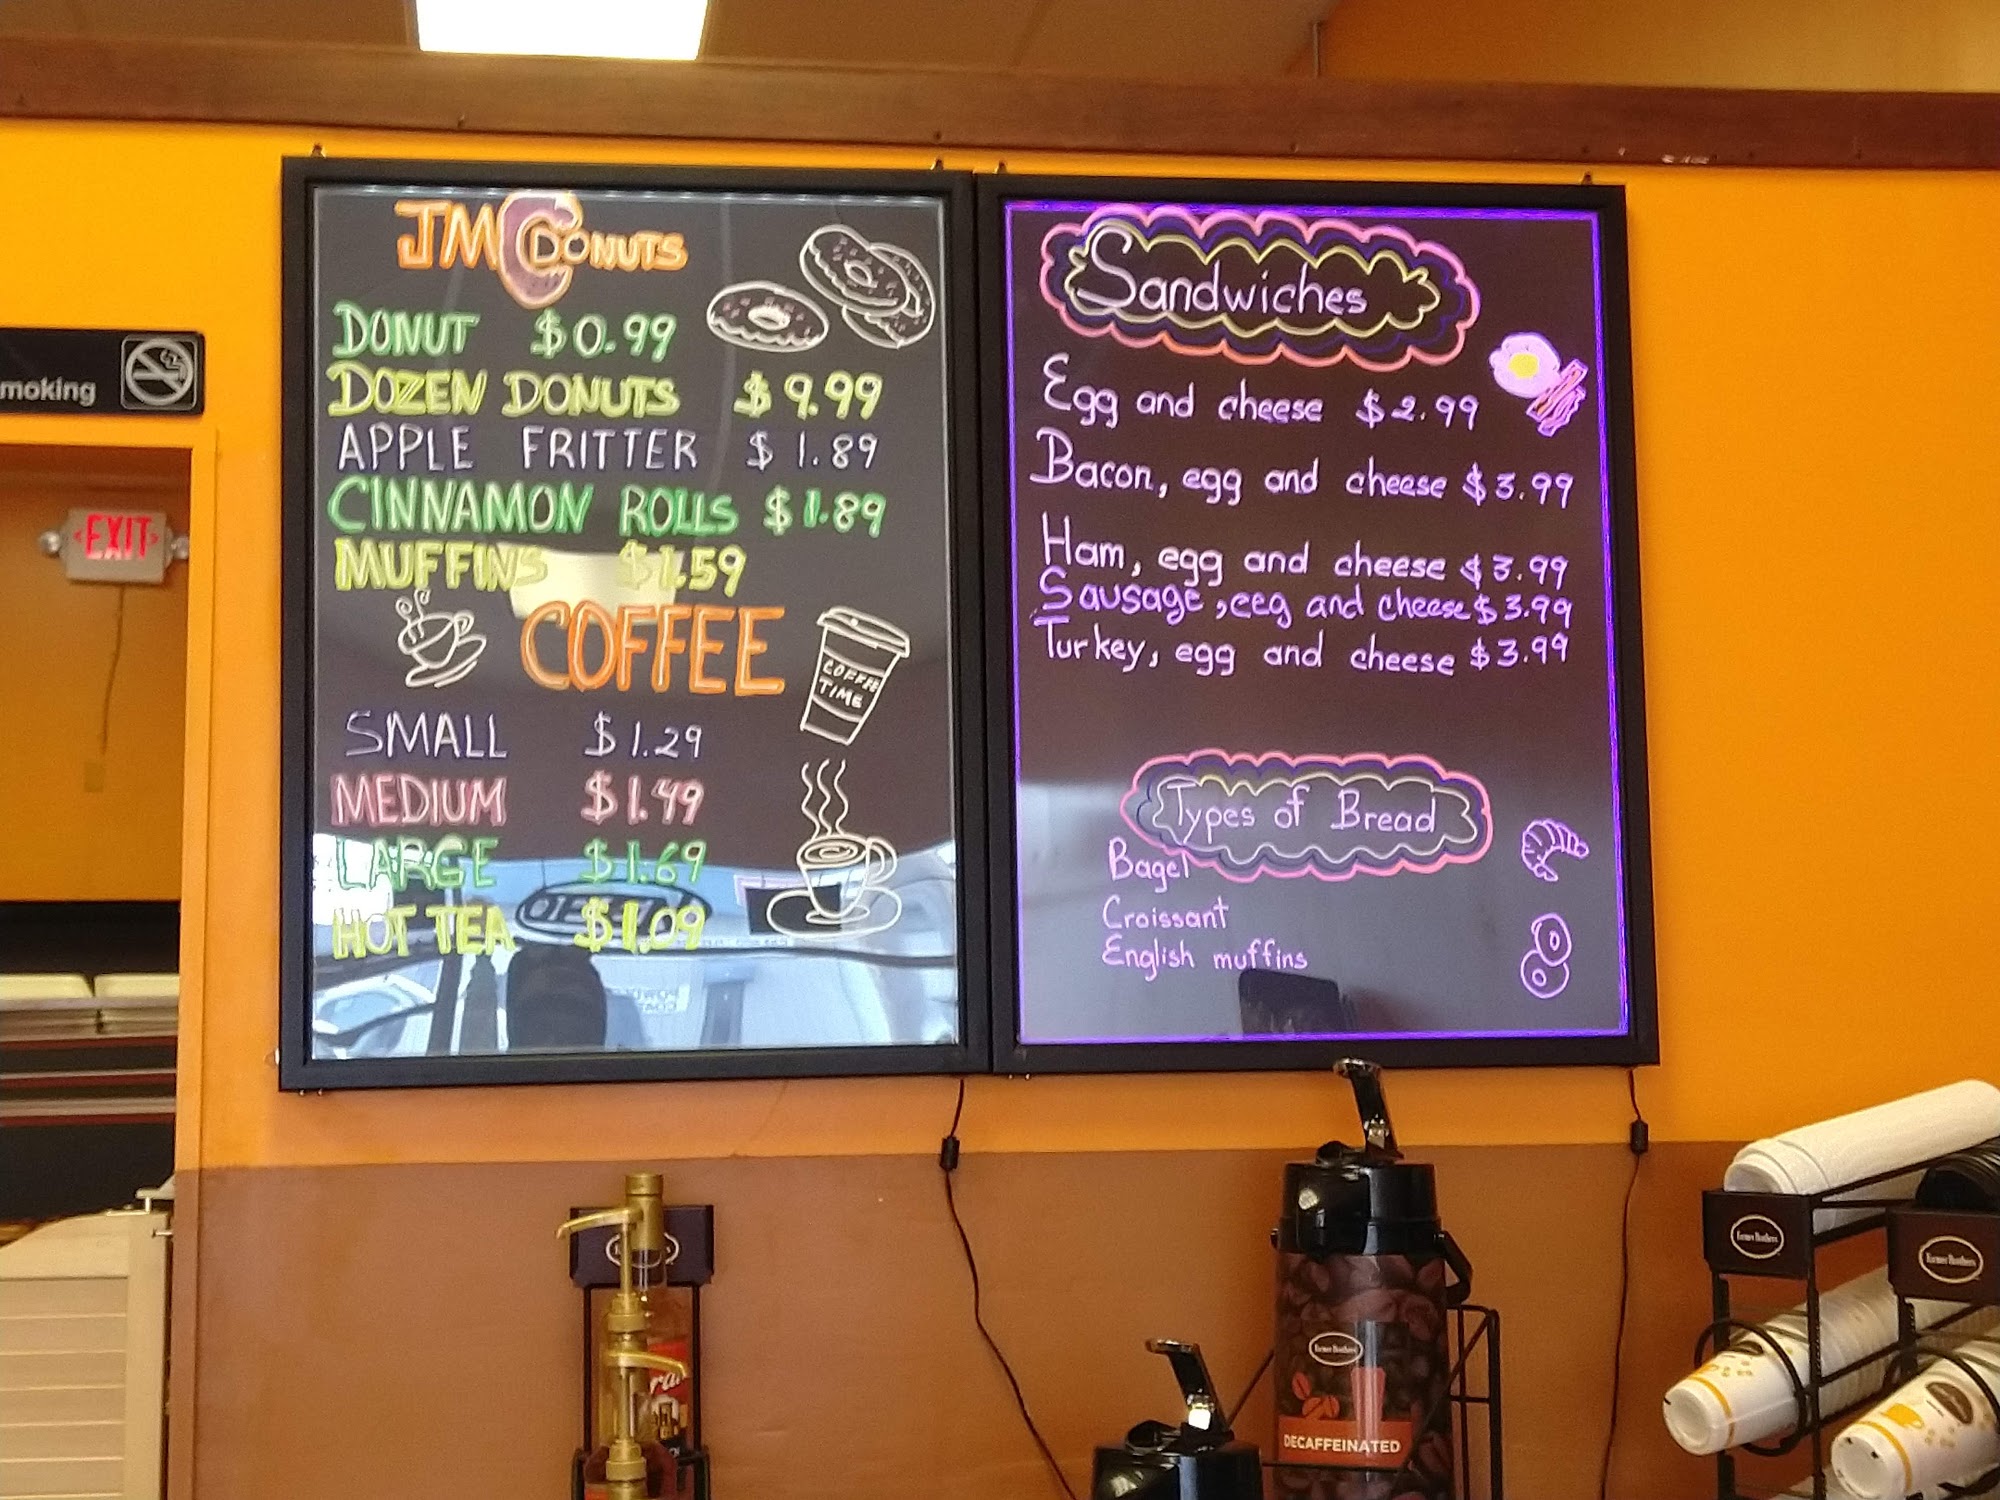 JMC DONUTS
DONUT $0.99
DOZEN DONUTS $9.99
APPLE FRITTER $1.89
CINNAMON ROLLS $1.89
MUFFINS $1.59
COFFEE
COFFEE TIME
SMALL $1.29
MEDIUM $1.49
LARGE $1.69
HOT TEA $1.09
Sandwiches
Egg and cheese $2.99
Bacon, egg and cheese $3.99
Ham, egg and cheese $3.99
Sausage, eeg and cheese $3.99
Turkey, egg and cheese $3.99
Types of Bread
Bagel
Croissant
English muffins
moking
EXIT
Farmer Brothers
DECAFFEINATED
Farmer Brothers
Farmer Brothers